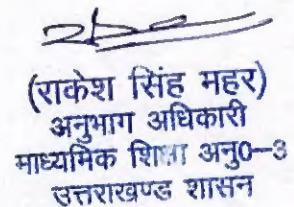 (राकेश सिंह महर)
अनुभाग अधिकारी
माध्यमिक शिक्षा अनु0–3
उत्तराखण्ड शासन